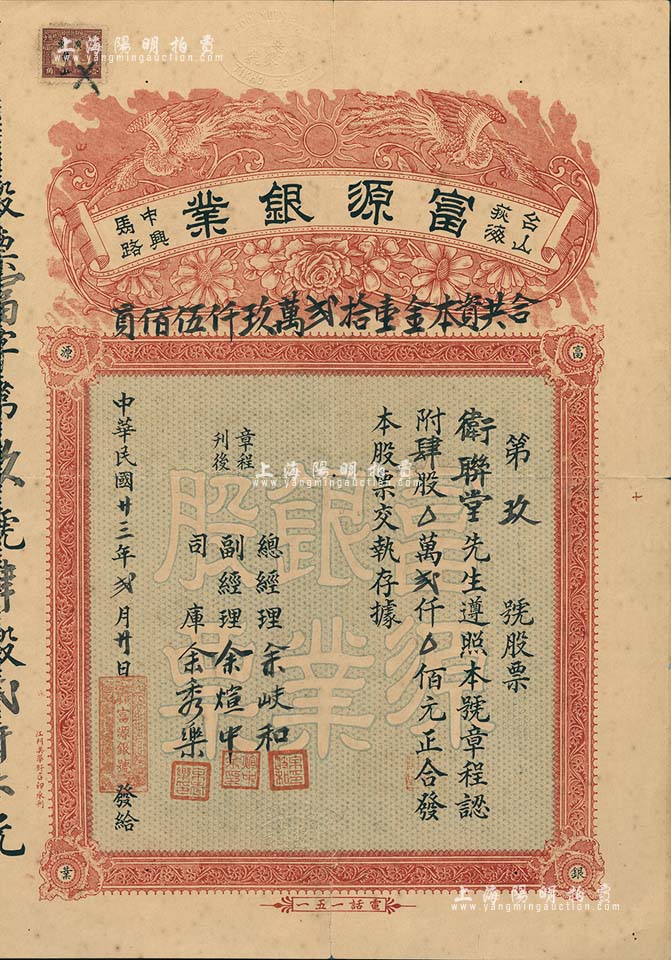 富源銀業
台山
荻海
中興
馬路
合共資本金壹拾弍萬玖仟伍佰員
富
源
銀
業
第玖號股票
衛聯堂先生遵照本號章程認
附肆股〇萬弍仟〇佰元正合發
本股票交執存據
總經理余岐和
副經理余煊中
司庫余秀樂
章程
列後
中華民國廿三年弍月廿日
發給
富源銀業股票
電話一五一
股票富字第玖號肆股弍仟〇元
上海陽明拍賣
www.yangmingauction.com
上海陽明拍賣
www.yangmingauction.com
上海陽明拍賣
www.yangmingauction.com